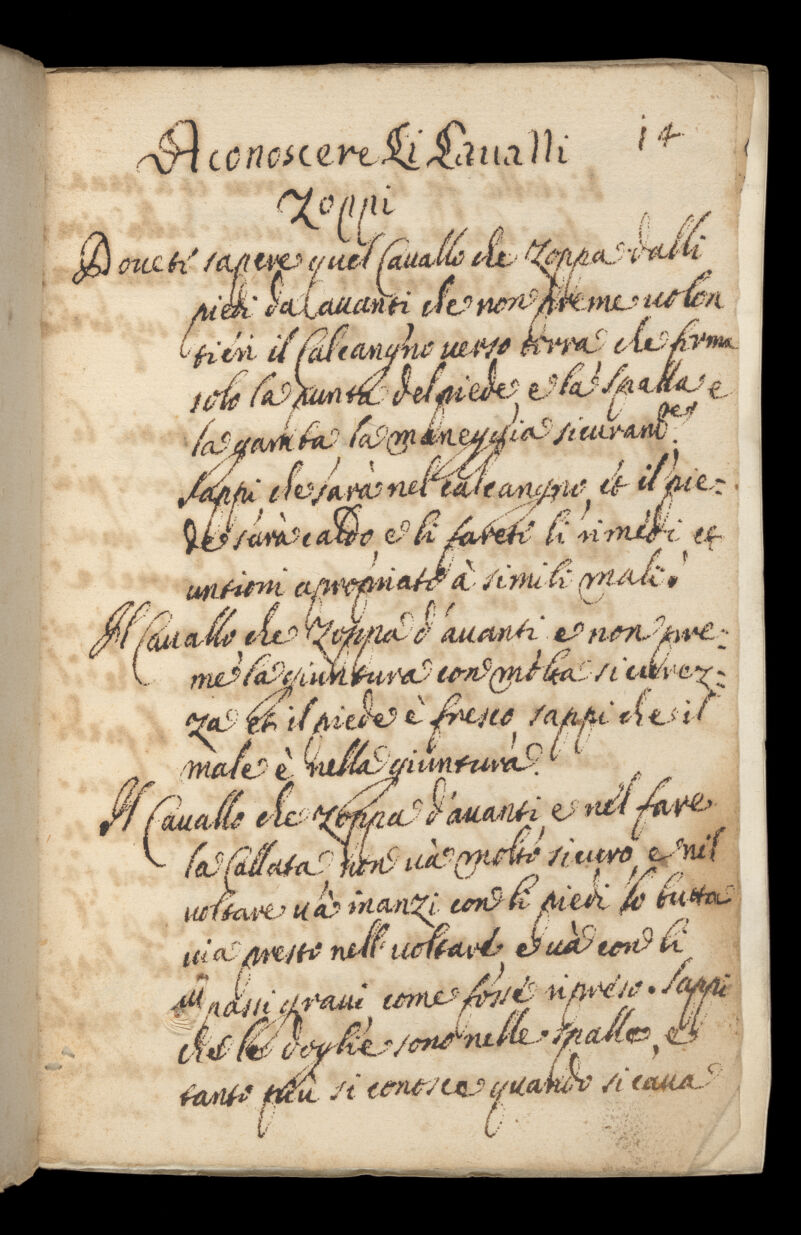 A conoscere Li Cavalli 14
Zoppi
Doueti sapere quel Cauallo che Zoppa dalli
piedi da auanti che non preme uolen
tieri il Calcangno uerso terra che ferma
solo la punta del piede e la spalla e
la gamba la maneggia sicuramte.
Sappi che sarà nel calcangno, et il pie=
de sarà caldo e li fareti li rimedi et
untioni apropriate à simili mali.
Il Cauallo che Zoppa d'auanti e non pre=
me la giuntura con molta sicurez=
za et il piede è fresco sappi che il
male è nella giuntura.
Il Cauallo che Zoppa d'auanti e nel fare
la Callata non uà molto sicuro, e nel
uoltare uà inanzi con li piedi lo butta
uia presto nell uoltare e uà con li
passi graui come fosse ripreso. Sappi
che le doglie sono nelle spalle, e
tanto più si conosce quando si caua